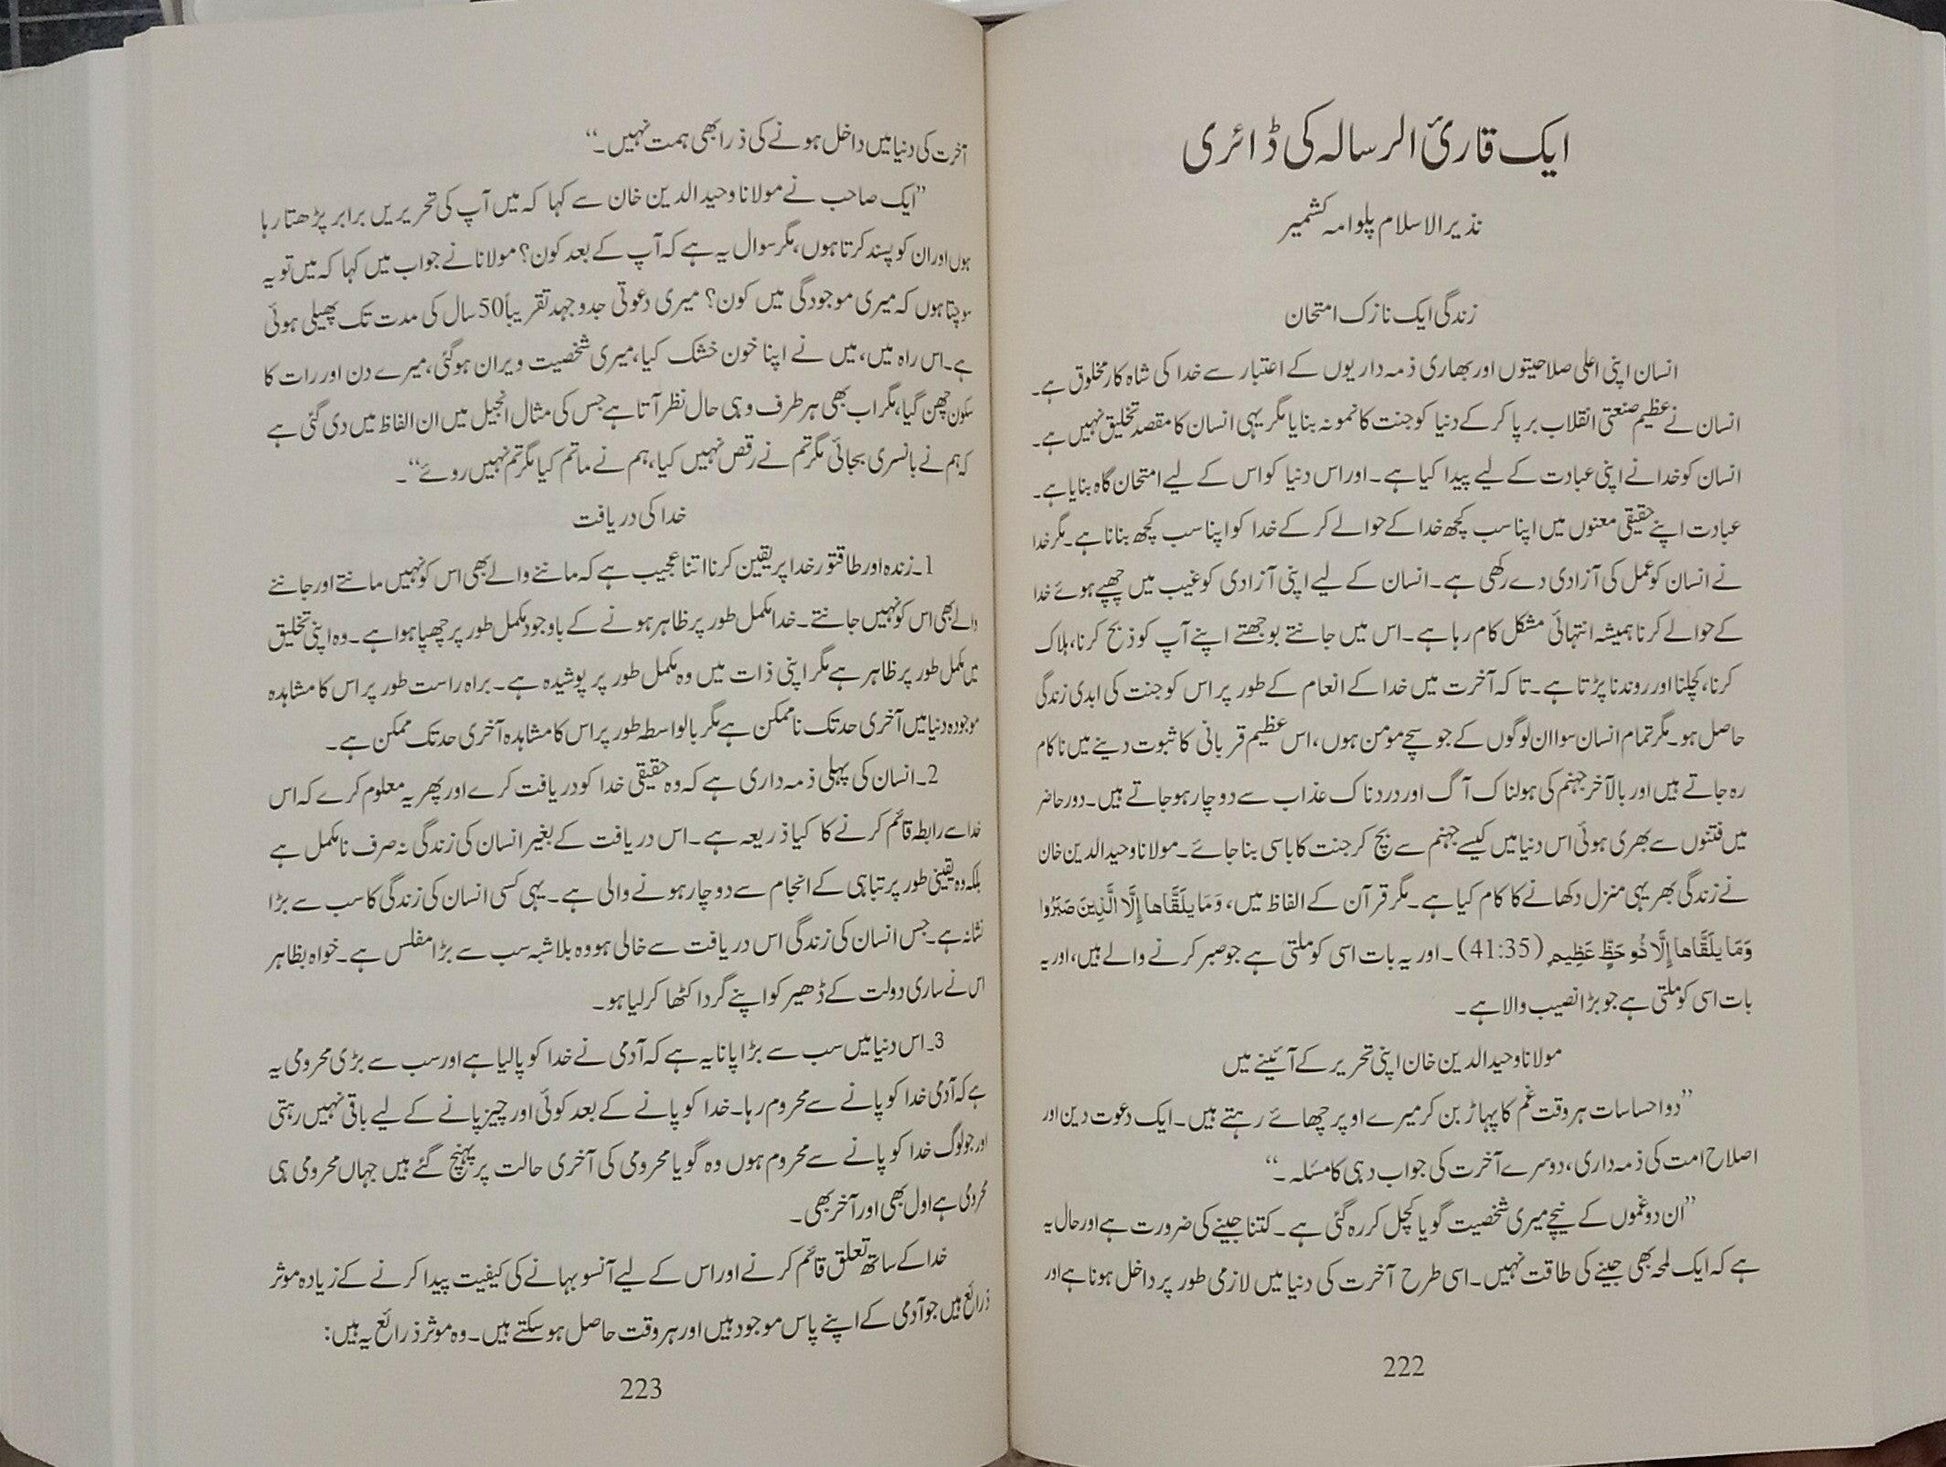 ایک قاریٔ الرسالہ کی ڈائری
نذیر الاسلام پلوامہ کشمیر
زندگی ایک نازک امتحان
انسان اپنی اعلیٰ صلاحیتوں اور بھاری ذمہ داریوں کے اعتبار سے خدا کی شاہ کار مخلوق ہے۔
انسان نے عظیم صنعتی انقلاب برپا کر کے دنیا کو جنت کا نمونہ بنایا مگر یہی انسان کا مقصد تخلیق نہیں ہے۔
انسان کو خدا نے اپنی عبادت کے لیے پیدا کیا ہے۔ اور اس دنیا کو اس کے لیے امتحان گاہ بنایا ہے۔
عبادت اپنے حقیقی معنوں میں اپنا سب کچھ خدا کے حوالے کر کے خدا کو اپنا سب کچھ بنانا ہے۔ مگر خدا
نے انسان کو عمل کی آزادی دے رکھی ہے۔ انسان کے لیے اپنی آزادی کو غیب میں چھپے ہوئے خدا
کے حوالے کرنا ہمیشہ انتہائی مشکل کام رہا ہے۔ اس میں جانتے بوجھتے اپنے آپ کو ذبح کرنا، ہلاک
کرنا، کچلنا اور روندنا پڑتا ہے۔ تاکہ آخرت میں خدا کے انعام کے طور پر اس کو جنت کی ابدی زندگی
حاصل ہو۔ مگر تمام انسان سوا ان لوگوں کے جو سچے مومن ہوں، اس عظیم قربانی کا ثبوت دینے میں ناکام
رہ جاتے ہیں اور بالآخر جہنم کی ہولناک آگ اور دردناک عذاب سے دوچار ہو جاتے ہیں۔ دور حاضر
میں فتنوں سے بھری ہوئی اس دنیا میں کیسے جہنم سے بچ کر جنت کا باسی بنا جائے۔ مولانا وحید الدین خان
نے زندگی بھر یہی منزل دکھانے کا کام کیا ہے۔ مگر قرآن کے الفاظ میں، وَمَا يلَقَّاها إِلَّا الَّذِينَ صَبَرُوا
وَمَا يلَقَّاها إِلَّا ذُو حَظٍّ عَظِيمٍ (41:35)۔ اور یہ بات اسی کو ملتی ہے جو صبر کرنے والے ہیں، اور یہ
بات اسی کو ملتی ہے جو بڑا نصیب والا ہے۔
مولانا وحید الدین خان اپنی تحریر کے آئینے میں
”دو احساسات ہر وقت غم کا پہاڑ بن کر میرے اوپر چھائے رہتے ہیں۔ ایک دعوت دین اور
اصلاح امت کی ذمہ داری، دوسرے آخرت کی جواب دہی کا مسئلہ۔“
”ان دو غموں کے نیچے میری شخصیت گویا کچل کر رہ گئی ہے۔ کتنا جینے کی ضرورت ہے اور حال یہ
ہے کہ ایک لمحہ بھی جینے کی طاقت نہیں۔ اسی طرح آخرت کی دنیا میں لازمی طور پر داخل ہونا ہے اور
222
آخرت کی دنیا میں داخل ہونے کی ذرا بھی ہمت نہیں۔“
”ایک صاحب نے مولانا وحید الدین خان سے کہا کہ میں آپ کی تحریریں برابر پڑھتا رہا
ہوں اور ان کو پسند کرتا ہوں، مگر سوال یہ ہے کہ آپ کے بعد کون؟ مولانا نے جواب میں کہا کہ میں تو یہ
سوچتا ہوں کہ میری موجودگی میں کون؟ میری دعوتی جدوجہد تقریباً 50 سال کی مدت تک پھیلی ہوئی
ہے۔ اس راہ میں، میں نے اپنا خون خشک کیا، میری شخصیت ویران ہوگئی، میرے دن اور رات کا
سکون چھن گیا، مگر اب بھی ہر طرف وہی حال نظر آتا ہے جس کی مثال انجیل میں ان الفاظ میں دی گئی ہے
کہ ہم نے بانسری بجائی مگر تم نے رقص نہیں کیا، ہم نے ماتم کیا مگر تم نہیں روئے“۔
خدا کی دریافت
1۔ زندہ اور طاقتور خدا پر یقین کرنا اتنا عجیب ہے کہ ماننے والے بھی اس کو نہیں مانتے اور جاننے
والے بھی اس کو نہیں جانتے۔ خدا مکمل طور پر ظاہر ہونے کے باوجود مکمل طور پر چھپا ہوا ہے۔ وہ اپنی تخلیق
میں مکمل طور پر ظاہر ہے مگر اپنی ذات میں وہ مکمل طور پر پوشیدہ ہے۔ براہ راست طور پر اس کا مشاہدہ
موجودہ دنیا میں آخری حد تک ناممکن ہے مگر بالواسطہ طور پر اس کا مشاہدہ آخری حد تک ممکن ہے۔
2۔ انسان کی پہلی ذمہ داری ہے کہ وہ حقیقی خدا کو دریافت کرے اور پھر یہ معلوم کرے کہ اس
خدا سے رابطہ قائم کرنے کا کیا ذریعہ ہے۔ اس دریافت کے بغیر انسان کی زندگی نہ صرف نامکمل ہے
بلکہ وہ یقینی طور پر تباہی کے انجام سے دوچار ہونے والی ہے۔ یہی کسی انسان کی زندگی کا سب سے بڑا
نشانہ ہے۔ جس انسان کی زندگی اس دریافت سے خالی ہو وہ بلاشبہ سب سے بڑا مفلس ہے۔ خواہ بظاہر
اس نے ساری دولت کے ڈھیر کو اپنے گرد اکٹھا کر لیا ہو۔
3۔ اس دنیا میں سب سے بڑا پانا یہ ہے کہ آدمی نے خدا کو پالیا ہے اور سب سے بڑی محرومی یہ
ہے کہ آدمی خدا کو پانے سے محروم رہا۔ خدا کو پانے کے بعد کوئی اور چیز پانے کے لیے باقی نہیں رہتی
اور جو لوگ خدا کو پانے سے محروم ہوں وہ گویا محرومی کی آخری حالت پر پہنچ گئے ہیں جہاں محرومی ہی
محرومی ہے اول بھی اور آخر بھی۔
خدا کے ساتھ تعلق قائم کرنے اور اس کے لیے آنسو بہانے کی کیفیت پیدا کرنے کے زیادہ موثر
ذرائع ہیں جو آدمی کے اپنے پاس موجود ہیں اور ہر وقت حاصل ہو سکتے ہیں۔ وہ موثر ذرائع یہ ہیں:
223